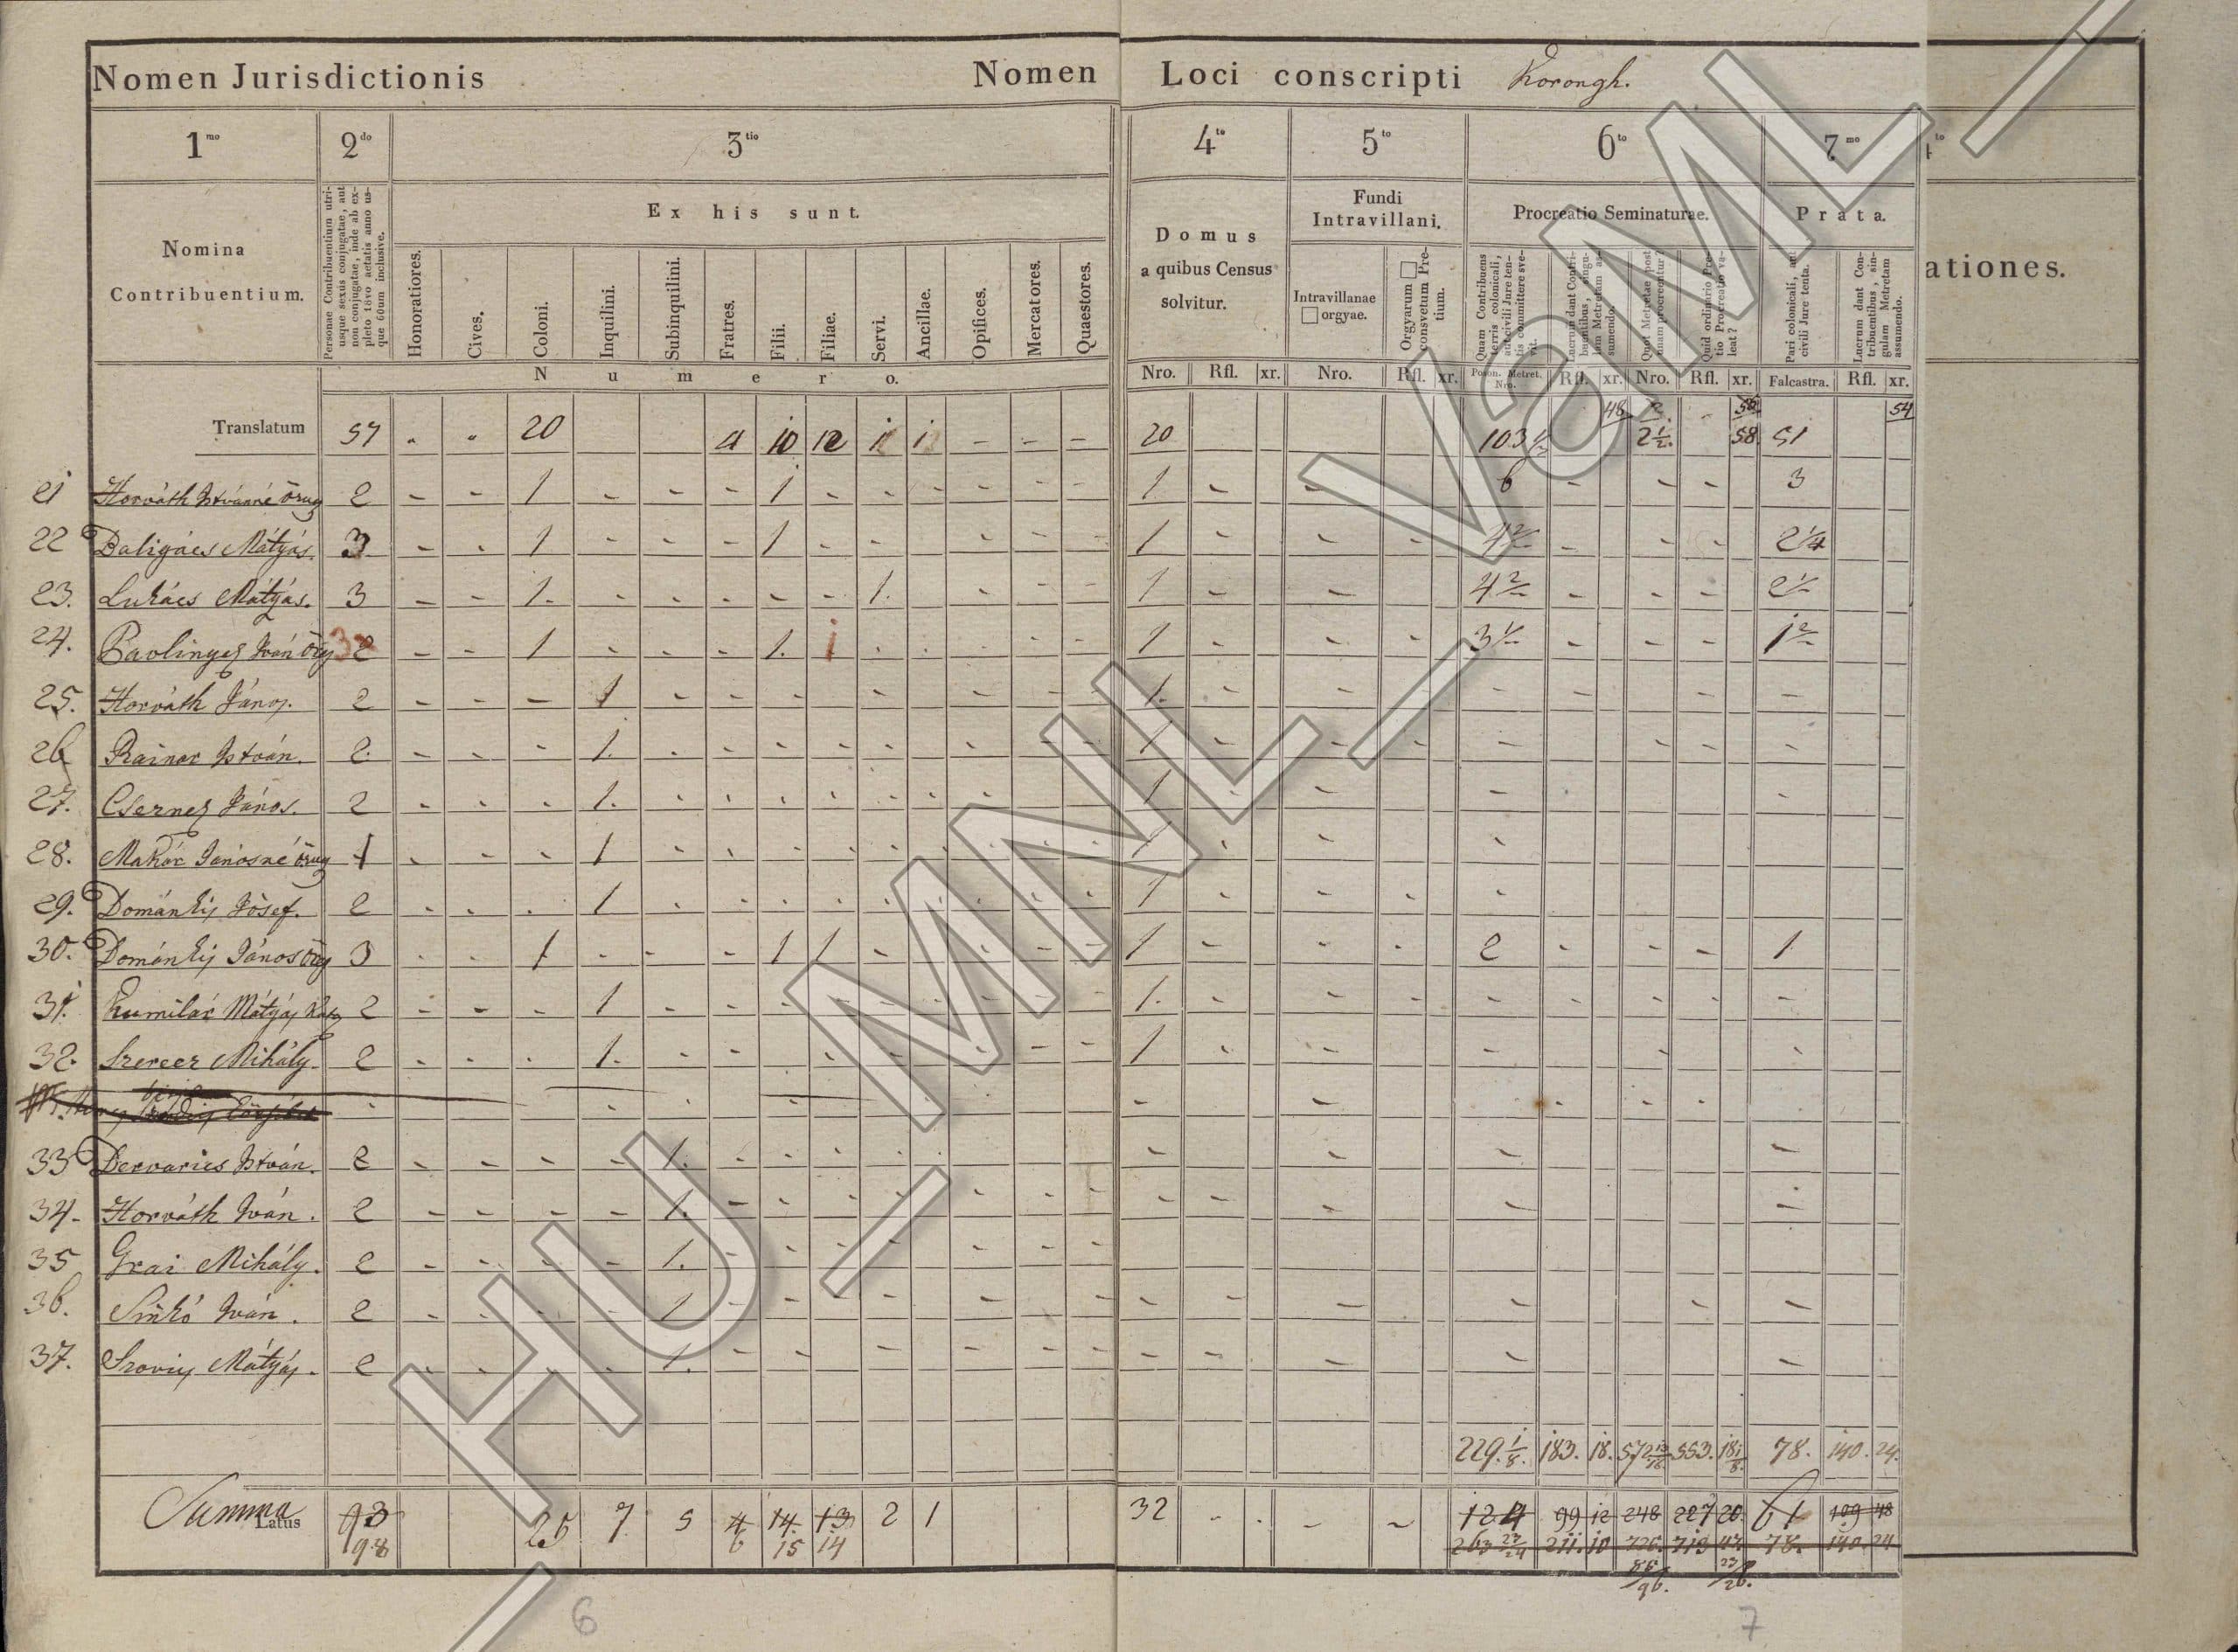 Nomen Jurisdictionis Nomen Loci conscripti Korongh.
1mo 2do 3tio 4to 5to 6to 7mo
Nomina Contribuentium.
Personae Contribuentium utri-
usque sexûs conjugatae, aut
non conjugatae, inde ab ex-
pleto 18vo aetatis anno us-
que 60um inclusive.
Ex his sunt.
Honoratiores. Cives. Coloni. Inquilini. Subinquilini. Fratres. Filii. Filiae. Servi. Ancillae. Opifices. Mercatores. Quaestores.
Numero.
Domus
a quibus Census
solvitur.
Fundi
Intravillani.
Intravillanae
□ orgyae.
Orgyarum □
consvetum Pre-
tium.
Procreatio Seminaturae.
Quam Contribuens
terris colonicali,
aut civili Jure ten-
tis committere sve-
vit.
Prata.
Pari colonicali, aut
civili Jure tenta.
Lucrum dant Con-
tribuentibus, sin-
gulam Metretam
assumendo.
ationes.
Nro. Rfl. xr. Nro. Rfl. xr. Poson. Metret. Nro. Rfl. xr. Nro. Rfl. xr. Falcastra. Rfl. xr.
48 58 54
Translatum 57 20 4 10 12 1 1 - - - 20 103 2½ 58 51
21 Horváth Istvánné özvy 2 - - 1 - - - 1 - - - - - - 1 - - 6 - - - 3
22 Daligács Mátyás. 3 - - 1 - - - 1 - - - - - 1 - - - 4 2 - - - 2¼
23. Lukács Mátyás. 3 - - 1. - - - - - 1. - - - 1 - - 4 2 - - - 2 1
24. Pavlinyez Iván öreg 3 2 - - 1 - - - 1. 1 - - 1 - - - 3 1 - - - 1 2
25. Horváth János. 2 - - - 1 - - - - - - - 1. - - - - - -
26 Rainer István. 2. - - - 1. - - - - - - - - - 1 - - - - - - -
27. Csernez János. 2 - - - 1. - - - - - - - 1 - - - -
28. Makár Jánosné özvy 1 - - - 1 - - - - - - - - - 1 - - -
29. Dománkij Jósef. 2 - - - 1 - - - - - - - - - 1 - - - -
30. Dománkij János öreg 3 - - 1 - - - 1 1 - - - - 1 - - - 2 - - - 1
31. Kumilár Mátyás 2 - - - 1 - - - - - - - - - 1. - - - - - - - -
32. Szercer Mihály. 2 - - - 1. - - - - - - - 1 - - - - -
33 Dervarics István. 2 - - - - 1. - - - - - - - - -
34. Horváth Iván. 2 - - - - 1. - - - - - - - - - - - -
35 Grai Mihály. 2 - - - - 1. - - - - - - -
36. Sinkó Iván. 2 - - - - 1 - - - - - - - - - - - -
37. Szovics Mátyás. 2 - - - - 1. - - - - - - - - - - -
229. 1/8. 183. 18. 572 13/16 553. 18 1/8. 78. 140. 24.
Summa Latus 93 25 7 5 4 14 13 2 1 32 - - - - 124 99 12 248 227 20. 61 109 48
98 6 15 14 263 23/24 211. 10 726. 713 43 78. 140. 24
86/96. 23/26.
6 7
HU_MNL_VaML_